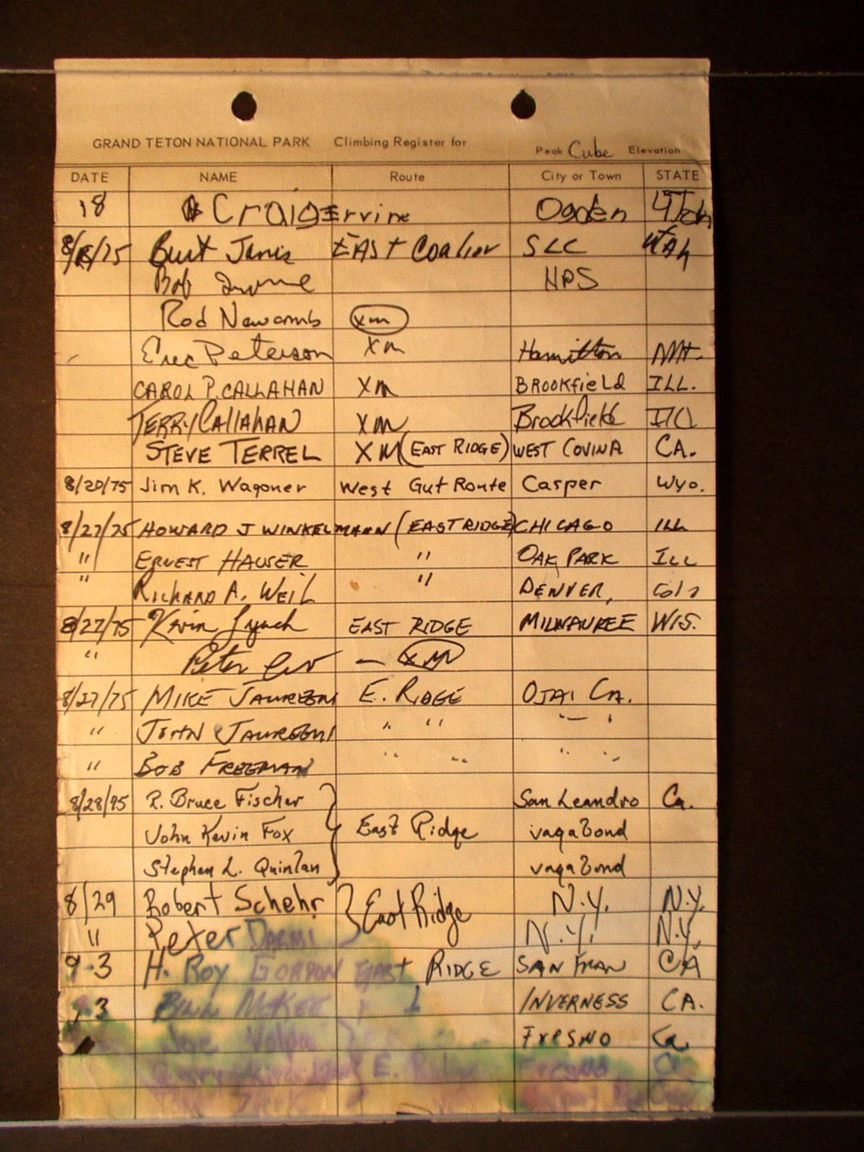 GRAND TETON NATIONAL PARK Climbing Register for Peak Cube Elevation
DATE NAME Route City or Town STATE
18 Craig Ervine Ogden Utah
8/18/75 Burt Janis East Coulior SLC Utah
Bob Irvine NPS
Rod Newcomb XM
Eric Peterson XM Hamilton Mt.
CAROL P. CALLAHAN XM BROOKFIELD ILL.
TERRY CALLAHAN XM Brookfield Ill
STEVE TERREL XM (EAST RIDGE) WEST COVINA CA.
8/20/75 Jim K. Wagoner West Gut Route Casper Wyo.
8/27/75 HOWARD J WINKELMANN (EAST RIDGE) CHICAGO ILL
" ERNEST HAUSER " OAK PARK ILL
" RICHARD A. WEIL " DENVER, Colo
8/27/75 Kevin Lynch EAST RIDGE MILWAUKEE WIS.
" Peter — XM
8/27/75 MIKE JAUREGUI E. RIDGE OJAI CA.
" JOHN JAUREGUI " " " "
" BOB FREEMAN " " " "
8/28/75 R. Bruce Fischer San Leandro Ca.
John Kevin Fox East Ridge vagabond
Stephen L. Quinlan vagabond
8/29 Robert Schehr East Ridge N.Y. N.Y.
" Peter N.Y. N.Y.
9-3 H. ROY GORDON EAST RIDGE SAN FRAN CA
9-3 MCKEE INVERNESS CA.
Joe Fresno Ca
E. Ridge Fresno